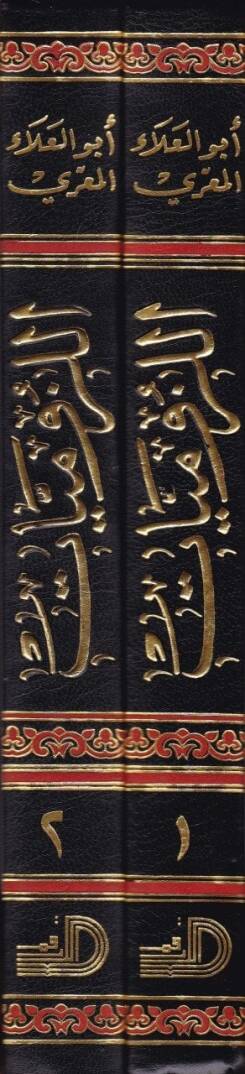 أبو العلاء
المعري
اللزوميات
١
أبو العلاء
المعري
اللزوميات
٢